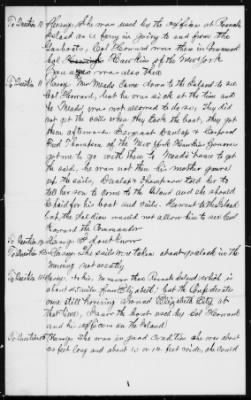 To Question 10 Answer She was used by the officers at Roanoke
Island as a ferry in going to and from the
Gunboats, Col Howard was then in Command
Col Hawkins of the New York
was also there
To Question 11 Answer Mr Meads Came down to the Island to see
Col Howard, but he was sick at the time and
Mr Meads was not allowed to do so, they did
not get the sails when they took the boat, they got
them afterwards. Sergeant Dunlop & Corporal
Fred Thompson of the New York Hawkins Zouaves
got me to go with them to Meads house to get
the sails, he was not then his mother gave
up the sails, Dunlop & Thompson told her to
tell her son to come to the Island and he should
be paid for his boat and sails. He went to the Island
but the soldiers would not allow him to see Col
Howard the Commander
To Question 12 Answer I dont know
To Question 13 Answer The sails was taken about o'clock in the
morning not exactly
To Question 14 Answer to his, to Roanoke Island which is
about 45 miles from Elizabeth City but the Confederates
was still hovering around Elizabeth City at
that time, I saw the boat used by Col Howard
and his officers on the Island
To Question 15 Answer She was in good Condition she was about
feet long and about 12 or 14 feet wide, she would